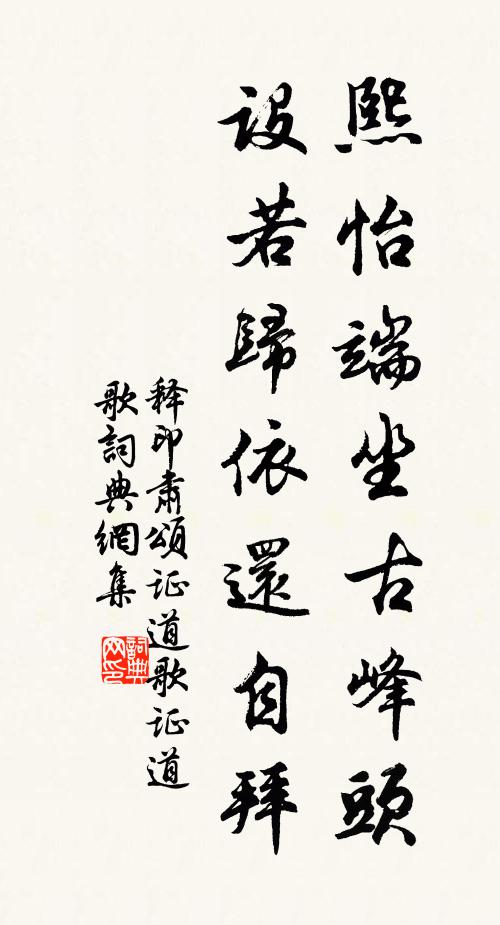 熙怡端坐古峰頭
設若歸依還自拜
释印肅頌证道歌证道
歌詞典網集
詞典网印